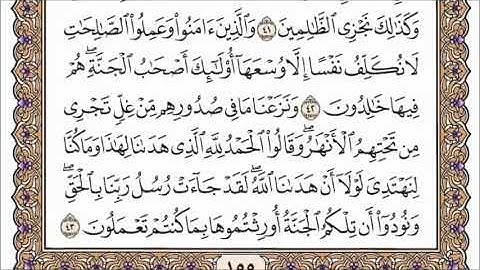 وَكَذَٰلِكَ نَجْزِي ٱلظَّٰلِمِينَ ٤١ وَٱلَّذِينَ ءَامَنُوا۟ وَعَمِلُوا۟ ٱلصَّٰلِحَٰتِ
لَا نُكَلِّفُ نَفْسًا إِلَّا وُسْعَهَآ أُو۟لَٰٓئِكَ أَصْحَٰبُ ٱلْجَنَّةِ ۖ هُمْ
فِيهَا خَٰلِدُونَ ٤٢ وَنَزَعْنَا مَا فِي صُدُورِهِم مِّنْ غِلٍّ تَجْرِي
مِن تَحْتِهِمُ ٱلْأَنْهَٰرُ ۖ وَقَالُوا۟ ٱلْحَمْدُ لِلَّهِ ٱلَّذِي هَدَىٰنَا لِهَٰذَا وَمَا كُنَّا
لِنَهْتَدِيَ لَوْلَآ أَنْ هَدَىٰنَا ٱللَّهُ ۖ لَقَدْ جَآءَتْ رُسُلُ رَبِّنَا بِٱلْحَقِّ ۖ
وَنُودُوٓا۟ أَن تِلْكُمُ ٱلْجَنَّةُ أُورِثْتُمُوهَا بِمَا كُنتُمْ تَعْمَلُونَ ٤٣
١٥٥